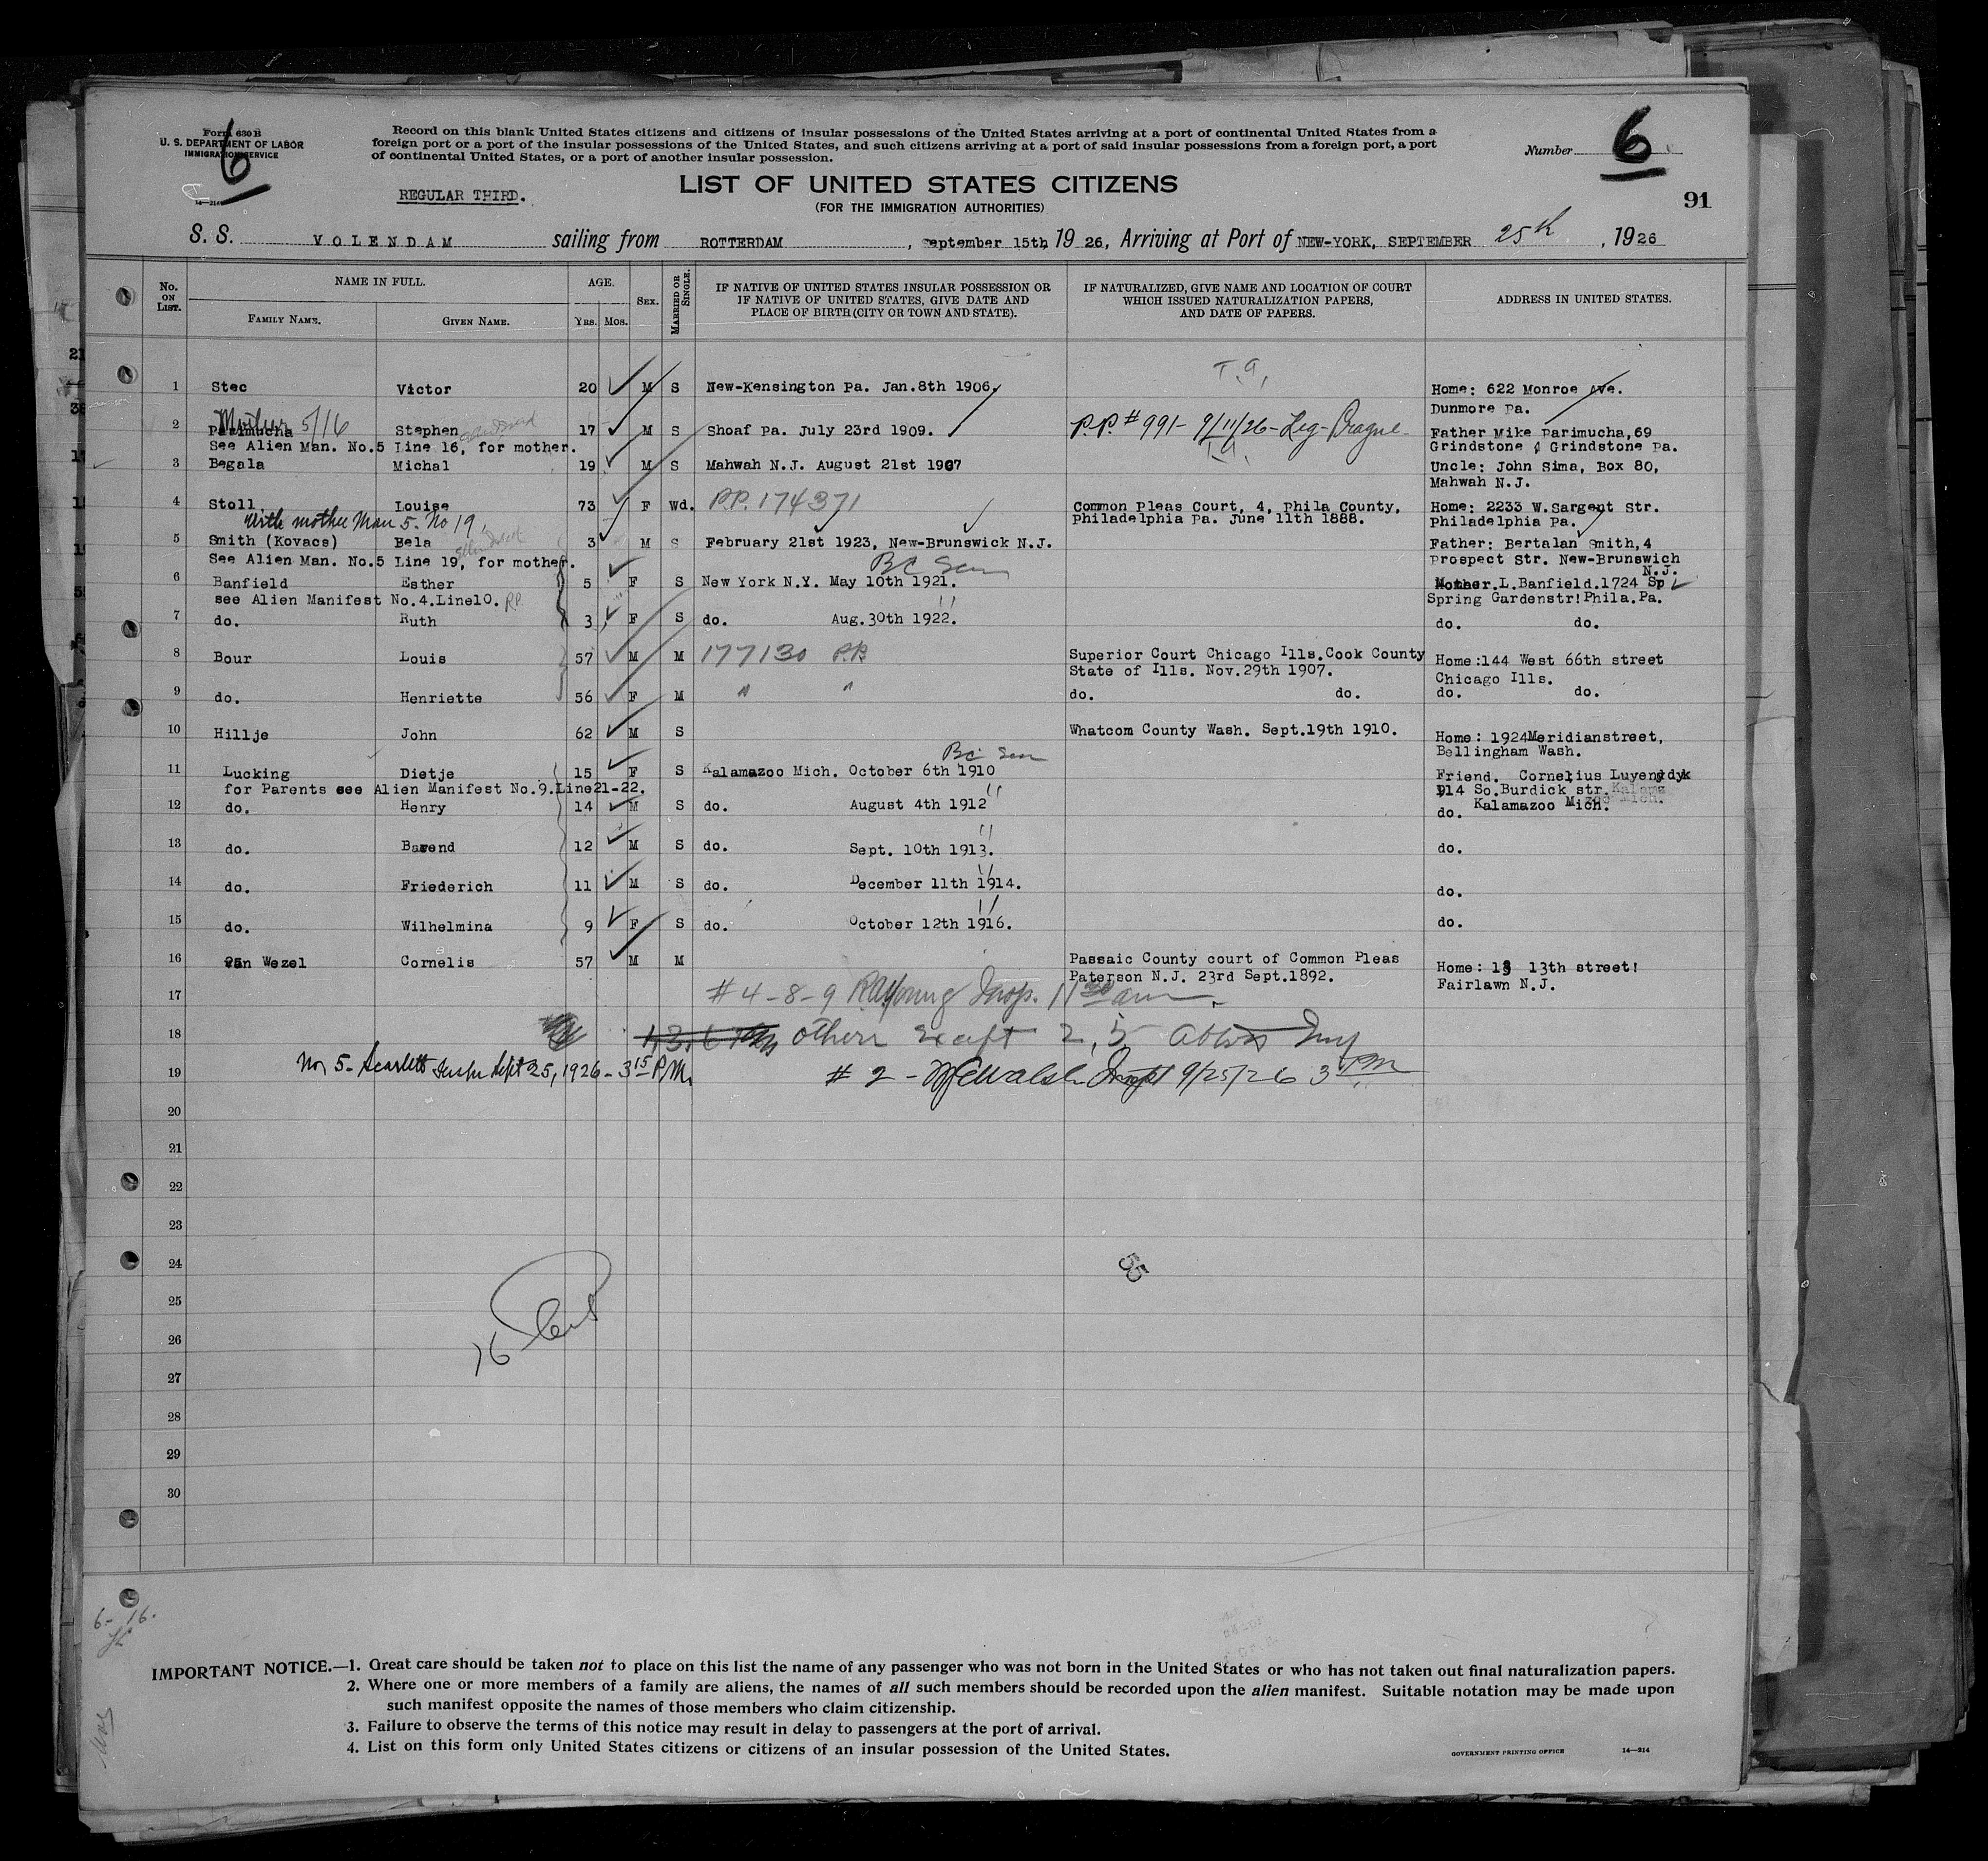 Form 630 B
U. S. DEPARTMENT OF LABOR
IMMIGRATION SERVICE
14—214
6
Record on this blank United States citizens and citizens of insular possessions of the United States arriving at a port of continental United States from a
foreign port or a port of the insular possessions of the United States, and such citizens arriving at a port of said insular possessions from a foreign port, a port
of continental United States, or a port of another insular possession.
Number 6
REGULAR THIRD.
LIST OF UNITED STATES CITIZENS
(FOR THE IMMIGRATION AUTHORITIES)
91
S. S. VOLENDAM sailing from ROTTERDAM, September 15th, 1926, Arriving at Port of NEW-YORK, SEPTEMBER 25th, 1926
No. ON LIST. NAME IN FULL. AGE. SEX. MARRIED OR SINGLE. IF NATIVE OF UNITED STATES INSULAR POSSESSION OR IF NATIVE OF UNITED STATES, GIVE DATE AND PLACE OF BIRTH (CITY OR TOWN AND STATE). IF NATURALIZED, GIVE NAME AND LOCATION OF COURT WHICH ISSUED NATURALIZATION PAPERS, AND DATE OF PAPERS. ADDRESS IN UNITED STATES.
FAMILY NAME. GIVEN NAME. YRS. MOS.
T.A.
1 Stec Victor 20 M S New-Kensington Pa. Jan.8th 1906. Home: 622 Monroe Ave.
Dunmore Pa.
Mother 5/16
2 Parimucha Stephen 17 M S Shoaf Pa. July 23rd 1909. P.P. # 991- 9/11/26- Leg- Prague Father Mike Parimucha,69
See Alien Man. No.5 Line 16, for mother. Grindstone Grindstone Pa.
T.A.
3 Begala Michal 19 M S Mahwah N.J. August 21st 1907 Uncle: John Sima, Box 80,
Mahwah N.J.
4 Stoll Louise 73 F Wd. P.P. 174371 Common Pleas Court, 4, Phila County, Home: 2233 W.Sargent Str.
With mother Man 5. No 19, Philadelphia Pa. June 11th 1888. Philadelphia Pa.
5 Smith (Kovacs) Bela 3 M S February 21st 1923, New-Brunswick N.J. Father: Bertalan Smith,4
See Alien Man. No.5 Line 19, for mother. Prospect Str. New-Brunswick
BC Seen N.J.
6 Banfield Esther 5 F S New York N.Y. May 10th 1921. Mother.L.Banfield.1724 Sp
see Alien Manifest No.4.Line10. Spring Gardenstr!Phila.Pa.
7 do. Ruth 3 F S do. Aug.30th 1922. do. do.
8 Bour Louis 57 M M 177130 P.P. Superior Court Chicago Ills.Cook County Home:144 West 66th street
State of Ills. Nov.29th 1907. Chicago Ills.
9 do. Henriette 56 F M " " do. do. do. do.
10 Hillje John 62 M S Whatcom County Wash. Sept.19th 1910. Home: 1924Meridianstreet,
Bellingham Wash.
BC Seen
11 Lucking Dietje 15 F S Kalamazoo Mich. October 6th 1910 Friend. Cornelius Luyendyk
for Parents see Alien Manifest No.9.Line21-22. 914 So.Burdick str.
Kalamazoo Mich.
12 do. Henry 14 M S do. August 4th 1912 do.
13 do. Barend 12 M S do. Sept. 10th 1913. do.
14 do. Friederich 11 M S do. December 11th 1914. do.
15 do. Wilhelmina 9 F S do. October 12th 1916. do.
16 van Wezel Cornelis 57 M M Passaic County court of Common Pleas Home: 13 13th street!
Paterson N.J. 23rd Sept.1892. Fairlawn N.J.
17 # 4-8-9 RAYoung Insp. 11 30 am
18 others except 2, 5
19 No 5- Scarlett Insp Sept 25, 1926- 3 15 P.M. # 2 - Walsh Inspt 9/25/26 3 PM
20
21
22
23
24
55
25
26
16
27
28
29
30
6- 16.
IMPORTANT NOTICE.—1. Great care should be taken not to place on this list the name of any passenger who was not born in the United States or who has not taken out final naturalization papers.
2. Where one or more members of a family are aliens, the names of all such members should be recorded upon the alien manifest. Suitable notation may be made upon
such manifest opposite the names of those members who claim citizenship.
3. Failure to observe the terms of this notice may result in delay to passengers at the port of arrival.
4. List on this form only United States citizens or citizens of an insular possession of the United States.
GOVERNMENT PRINTING OFFICE 14—214